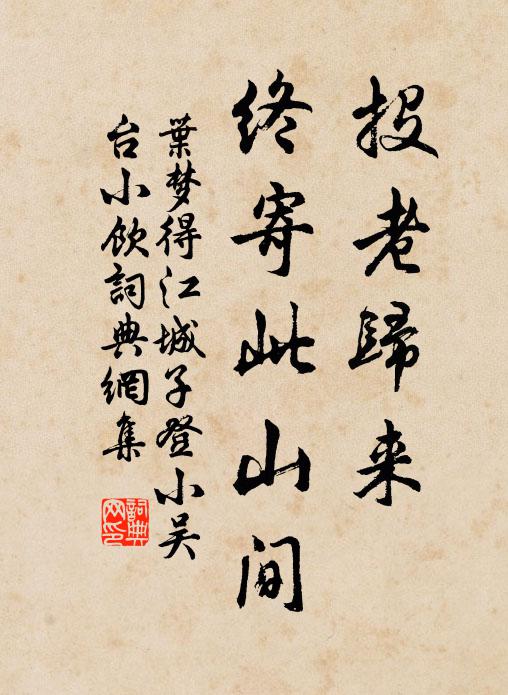 投老歸来
终寄此山间
葉梦得江城子登小吴
台小饮詞典網集
詞典
网印